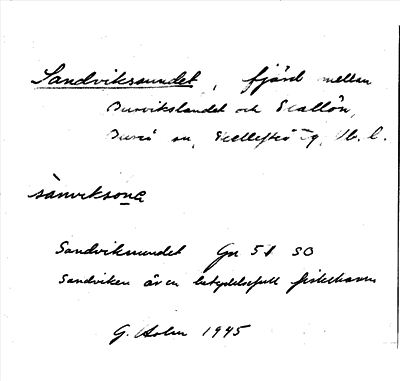 Sandviksundet, fjärd mellan
Burvikslandet och Scallön,
Bureå sn, Skellefteå tg, Vb. l.
sànviksonɑ
Sandviksundet Gn 51 SO
Sandviken är en betydelsefull fiskehamn
G. Holm 1945